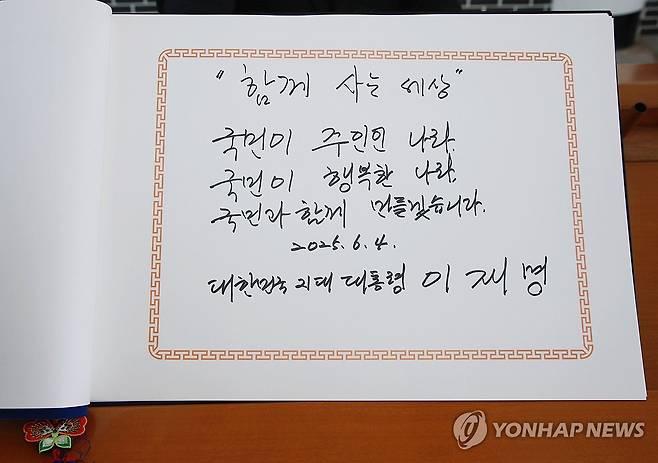 "함께 사는 세상"
국민이 주인인 나라.
국민이 행복한 나라.
국민과 함께 만들겠습니다.
2025. 6. 4.
대한민국 21대 대통령 이재명
YONHAP NEWS